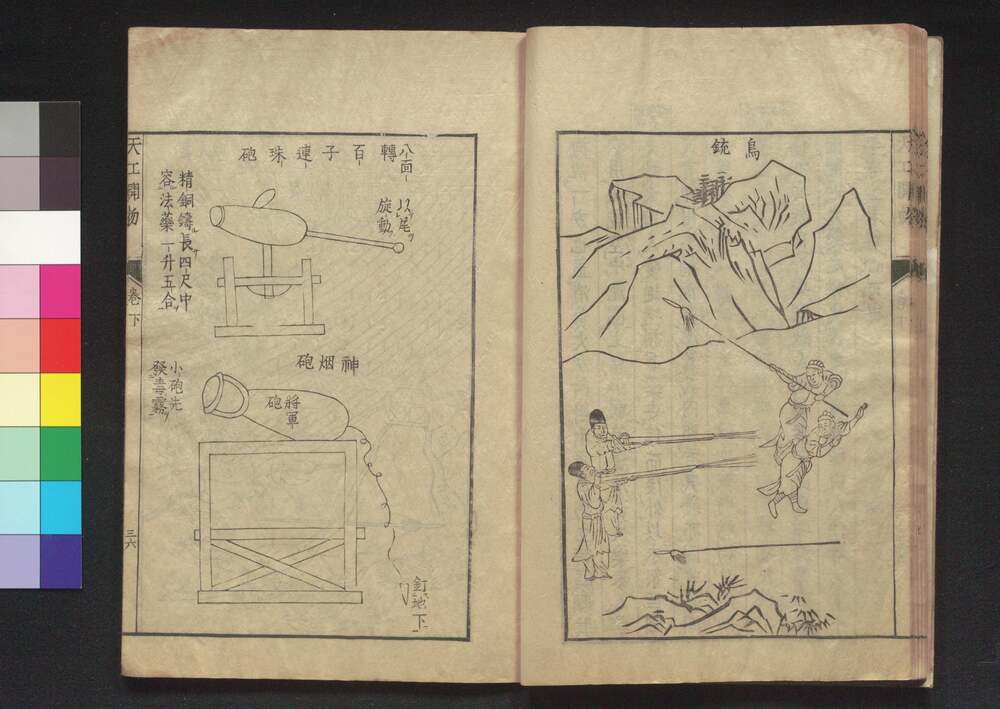 鳥銃
八面轉百子連珠砲
以尾
旋動
精銅鑄長四尺中
容法藥一升五合
神烟砲
將軍
砲
小砲先
發毒霧
釘地下
天工開物
卷下
三六